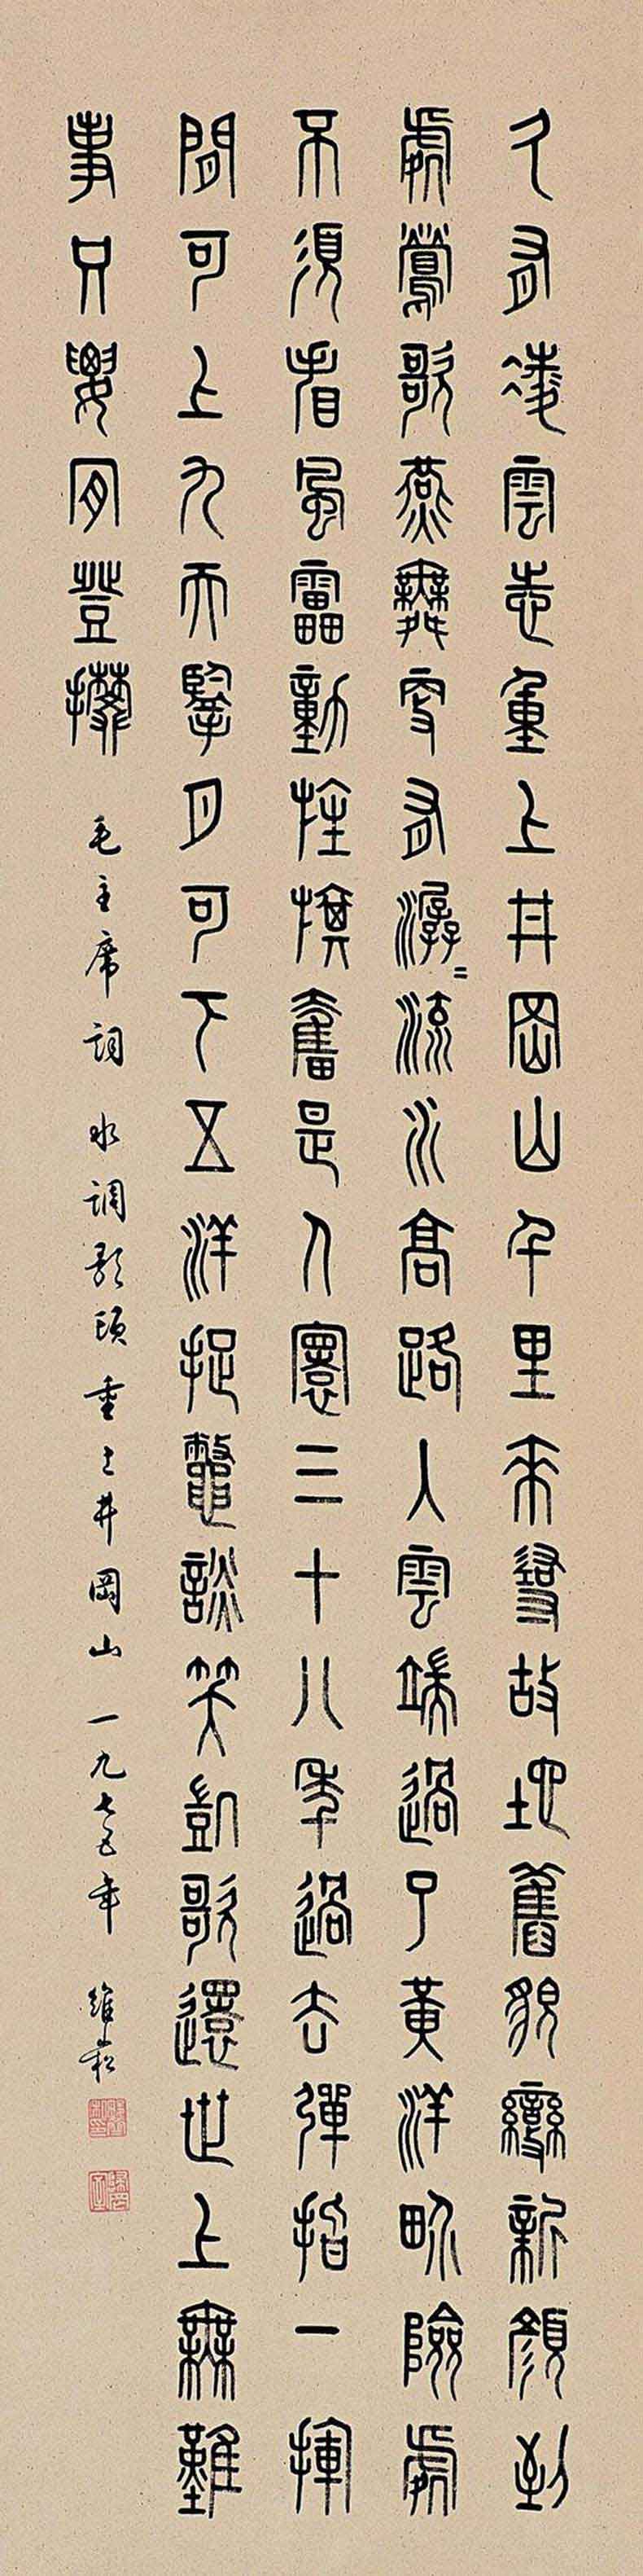 久有凌雲志重上井岡山千里來尋故地舊貌變新顏到
處鶯歌燕舞更有潺〻流水高路入雲端過了黃洋界險處
不須看風雷動旌旗奮是人寰三十八年過去彈指一揮
間可上九天攬月可下五洋捉鱉談笑凱歌還世上無難
事只要肯登攀
毛主席詞 水調歌頭 重上井岡山 一九七五年 維崧